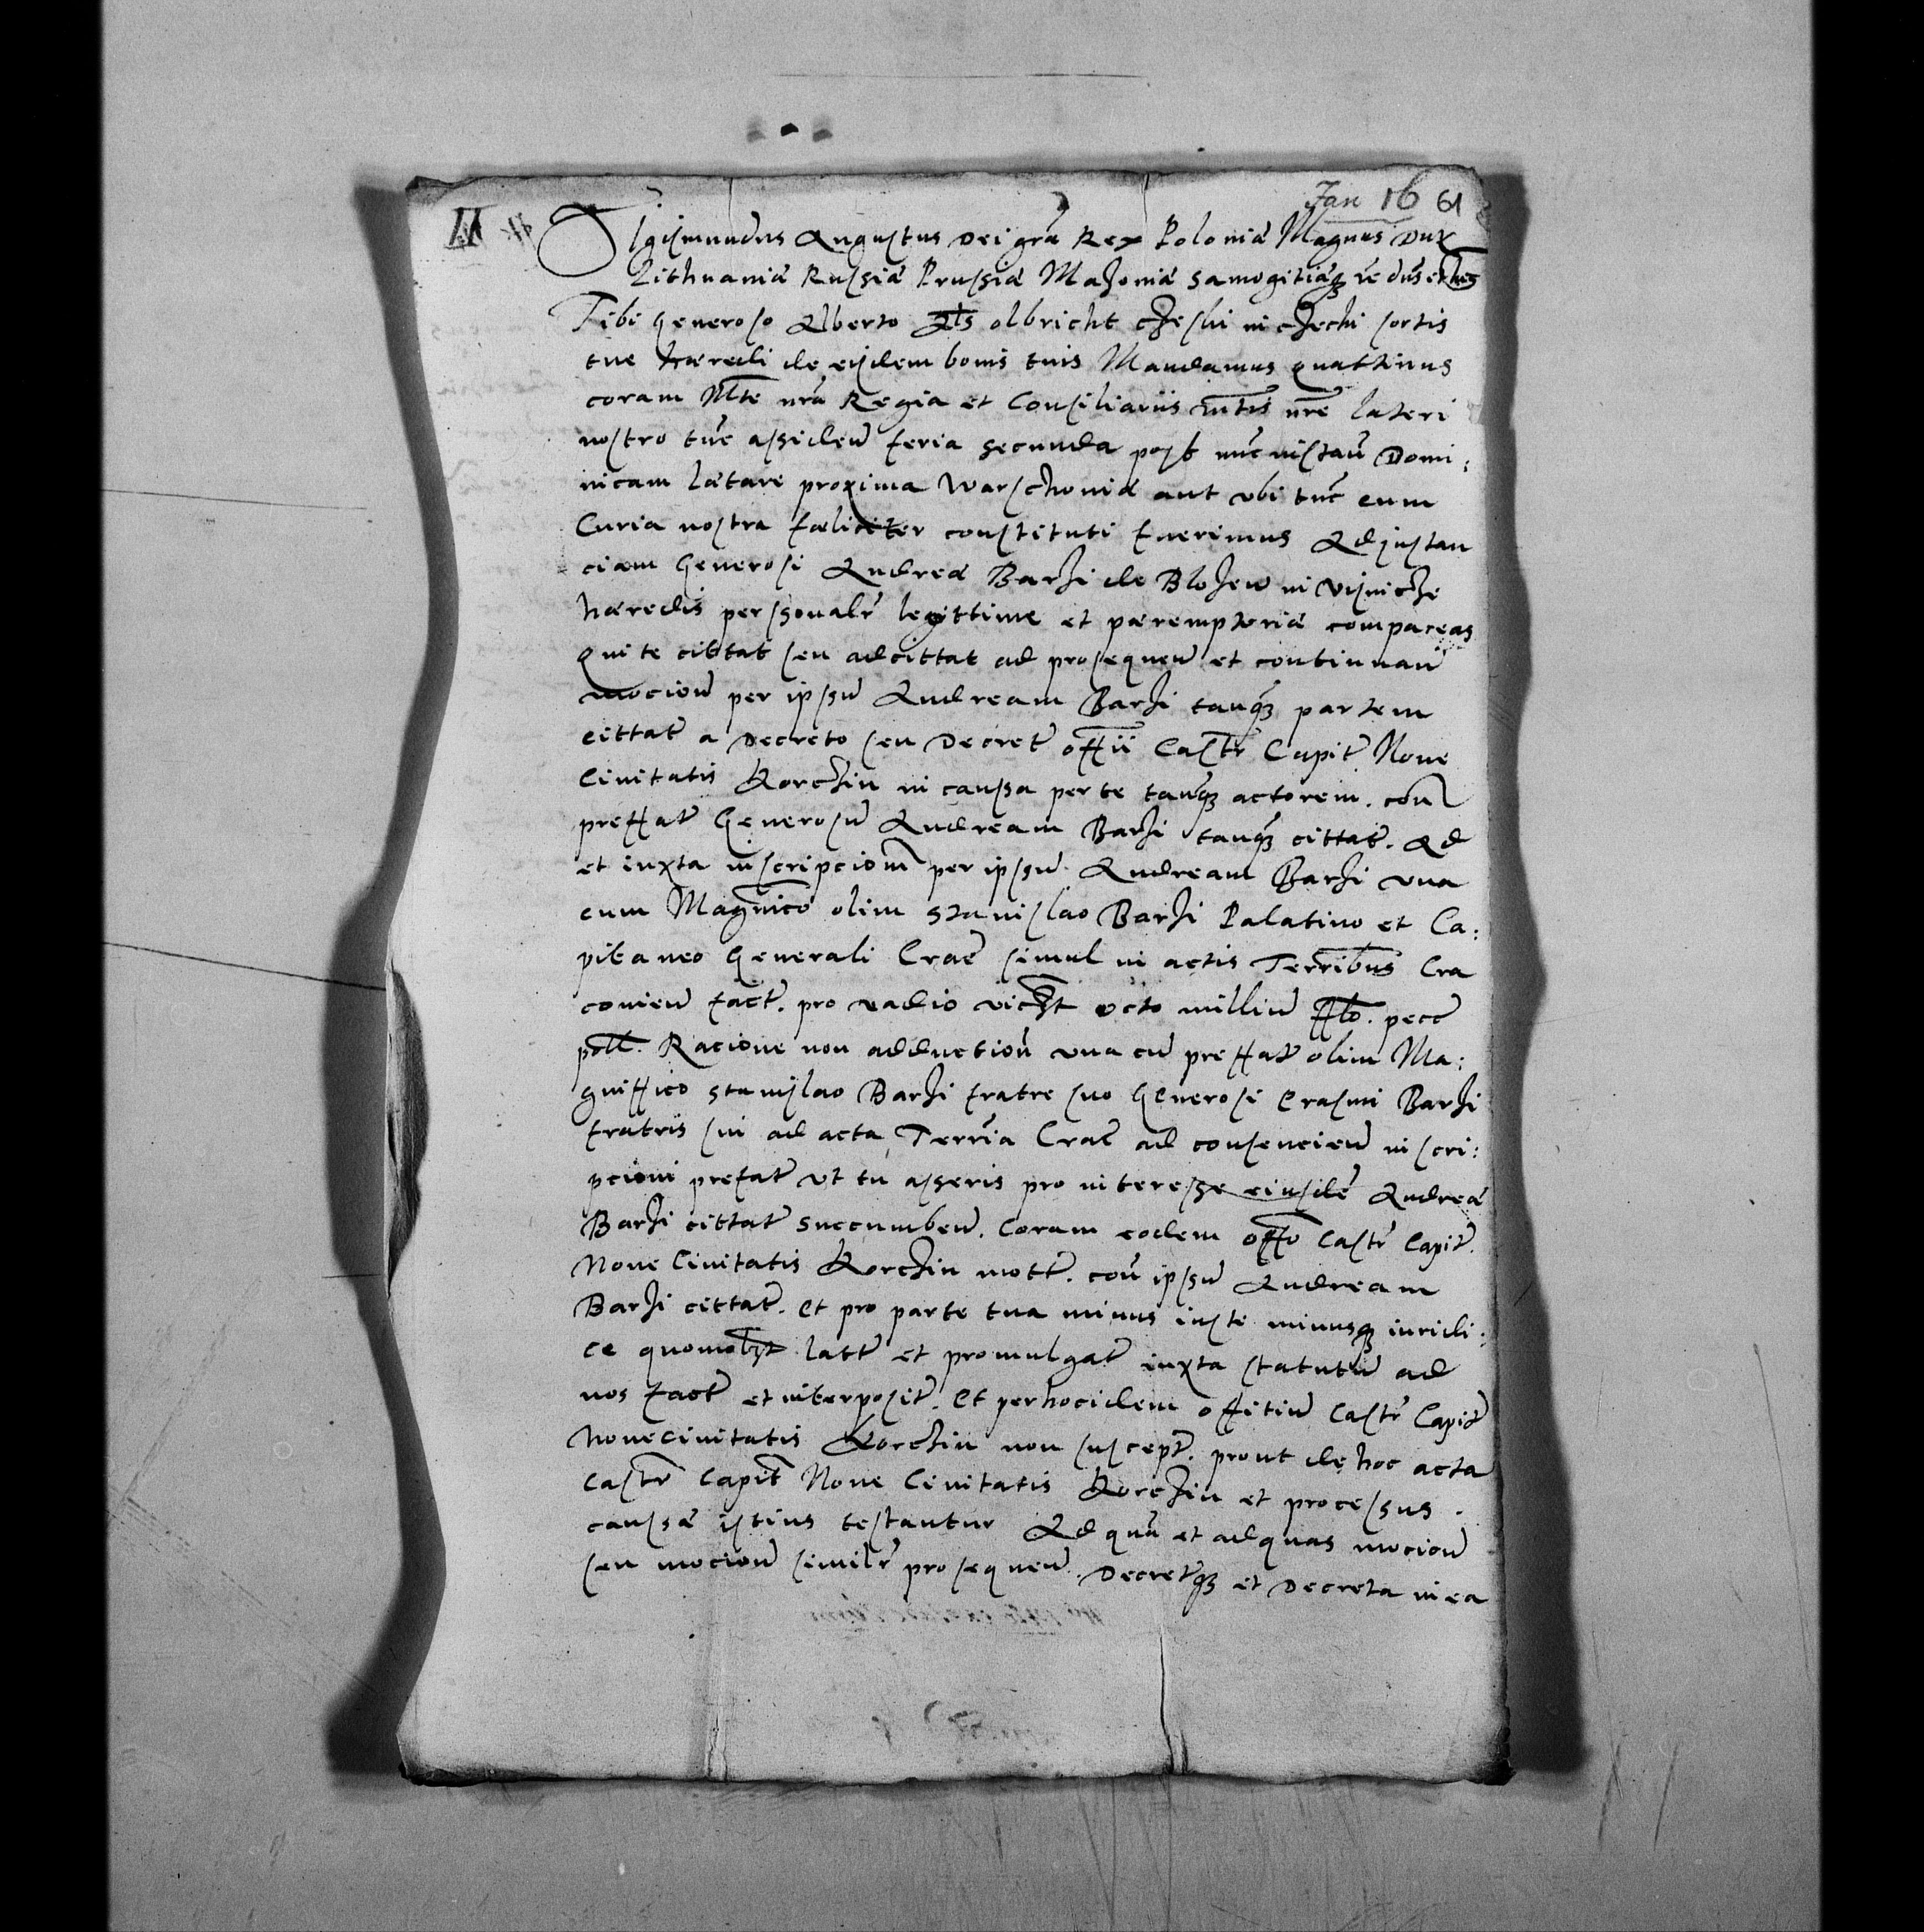 Jan 16 61
Sigismundus Augustus Dei gra Rex Poloniæ Magnus Dux
Lithuaniæ Russiæ Prussiæ Mazoniæ Samogitiæq3 etc dns et heres
Tibi Generoso Alberto als olbricht in sortis
tue hæredi de eisdem bonis tuis Mandamus quattinus
coram Mte nra Regia et Consiliariis nre lateri
nostro tuc assiden feria secunda post nuc instan Domi:
nicam Lætare proxima Warschoviæ aut vbi tuc cum
Curia nostra fæliciter constituti fuerimus Ad instan
ciam Generosi Andreæ Barzi de Blozew in Visnicze
hæredis personalr legittime et pæremptoriæ compareas
Qui te cittat seu adcittat ad prosequen et continuan
mocion per ipsu Andream Barzi tanq3 partem
cittat a Decreto seu Decret offii Castr Capit Nove
Civitatis Korczin in caussa per te tanq3 actorem. con
preffat Generosu Andream Barzi tanq3 cittat. Ad
et iuxta inscripciom per ipsu Andream Barzi vna
cum Magnico olim Stanislao Barzi Palatino et Ca:
pitaneo Generali Crac simul in actis Terribus Cra
covien fact. pro vadio octo milliu flo. pecc
poll. Racione non adduction vna cu preffat olim Ma:
gniffico Stanislao Barzi fratre suo Generosi Erasmi Barzi
fratris sui ad acta Terria Crac ad consencien inscri:
pcioni prefat vt tu asseris pro interesse eiusde Andreæ
Barzi cittat succumben. Coram eodem offo Castr Capit.
Nove Civitatis Korczin mott. con ipsu Andream
Barzi cittat. et pro parte tua minus iuste minusq3 iuridi:
ce quomolzt latt et promulgat iuxta statutu ad
nos fact et interposit. Et per hocidem offitiu Castr Capit
Nove civitatis Korczin non suscept. prout de hoc acta
Castr Capit Nove Civitatis Korczin et processus.
caussæ istius testantur Ad qua et ad quas mocion
seu mocion similr prosequen. Decretq3 et Decreta in ea